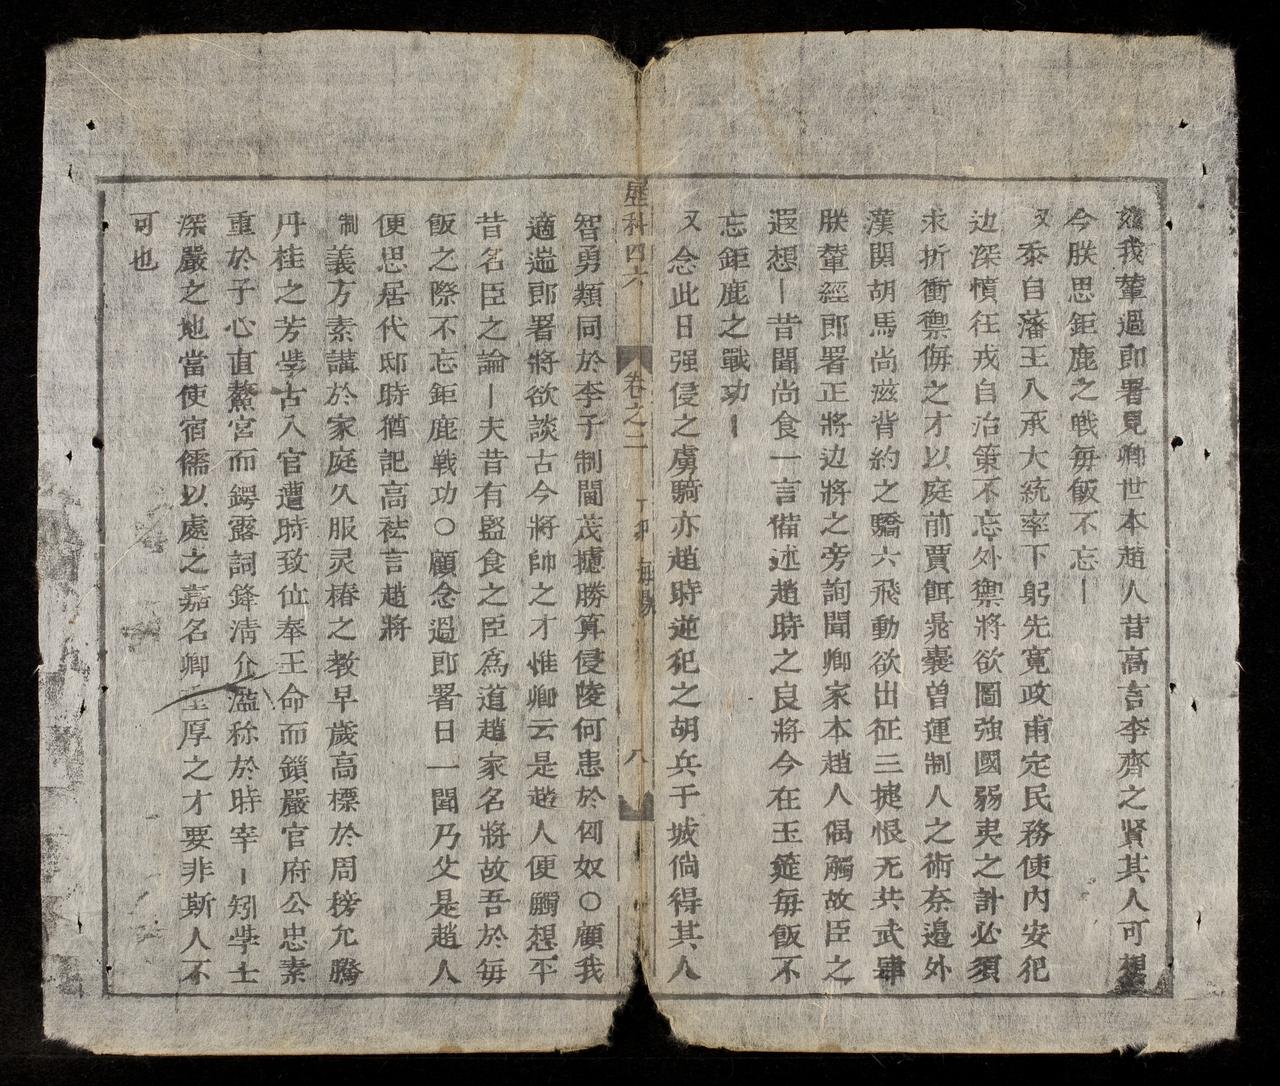 兹我輦過郎署見卿世本趙人昔高言李齊之賢其人可想
今朕思鉅鹿之戦毎飯不忘
又 忝自藩王入承大統率下躬先寛政甫定民務使内安犯
边深憤在戎自治策不忘外禦将欲圖強國弱夷之計必須
求折衝禦侮之才以庭前賈餌晁囊曽運制人之術奈邉外
漢関胡馬尚滋背約之驕六飛動欲出征三捷恨无共武肆
朕輦經郎署正将边将之旁詢聞卿家本趙人偈觸故臣之
遐想一昔聞尚食一言備述趙時之良将今在玉筵毎飯不
忘鉅鹿之戰功一
又 念此日强侵之虜騎亦趙時逆犯之胡兵干城倘得其人
歷科四六 卷之二 丁卯 八
智勇類同於李子制閫茂攄勝算侵陵何患於匈奴○顧我
適遄郎署將欲談古今將帥之才惟卿云是趙人便觸想平
昔名臣之論一夫昔有監食之臣爲道趙家名將故吾於每
飯之際不忘鉅鹿戦功○顧念過郎署日一聞乃父是趙人
便思居代邸時猶記高祛言趙將
制 義方素講於家庭久服灵椿之教早歲高標於周榜允騰
丹桂之芳學古入官遭時致位奉王命而鎖嚴官府公忠素
重於予心直鰲宮而鍔露詞鋒清介溢称於時宰一矧学士
深嚴之地當使宿儒以處之嘉名卿至厚之才要非斯人不
可也